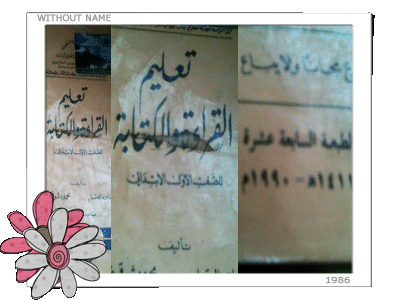 WITHOUT NAME
تعليم
القراءة والكتابة
للصف الأول الابتدائي
تأليف
تعليم
القراءة والكتابة
للصف الأول الابتدائي
تأليف
مجاناً ولا يباع
الطبعة السابعة عشرة
١٤١١هـ - ١٩٩٠م
1986